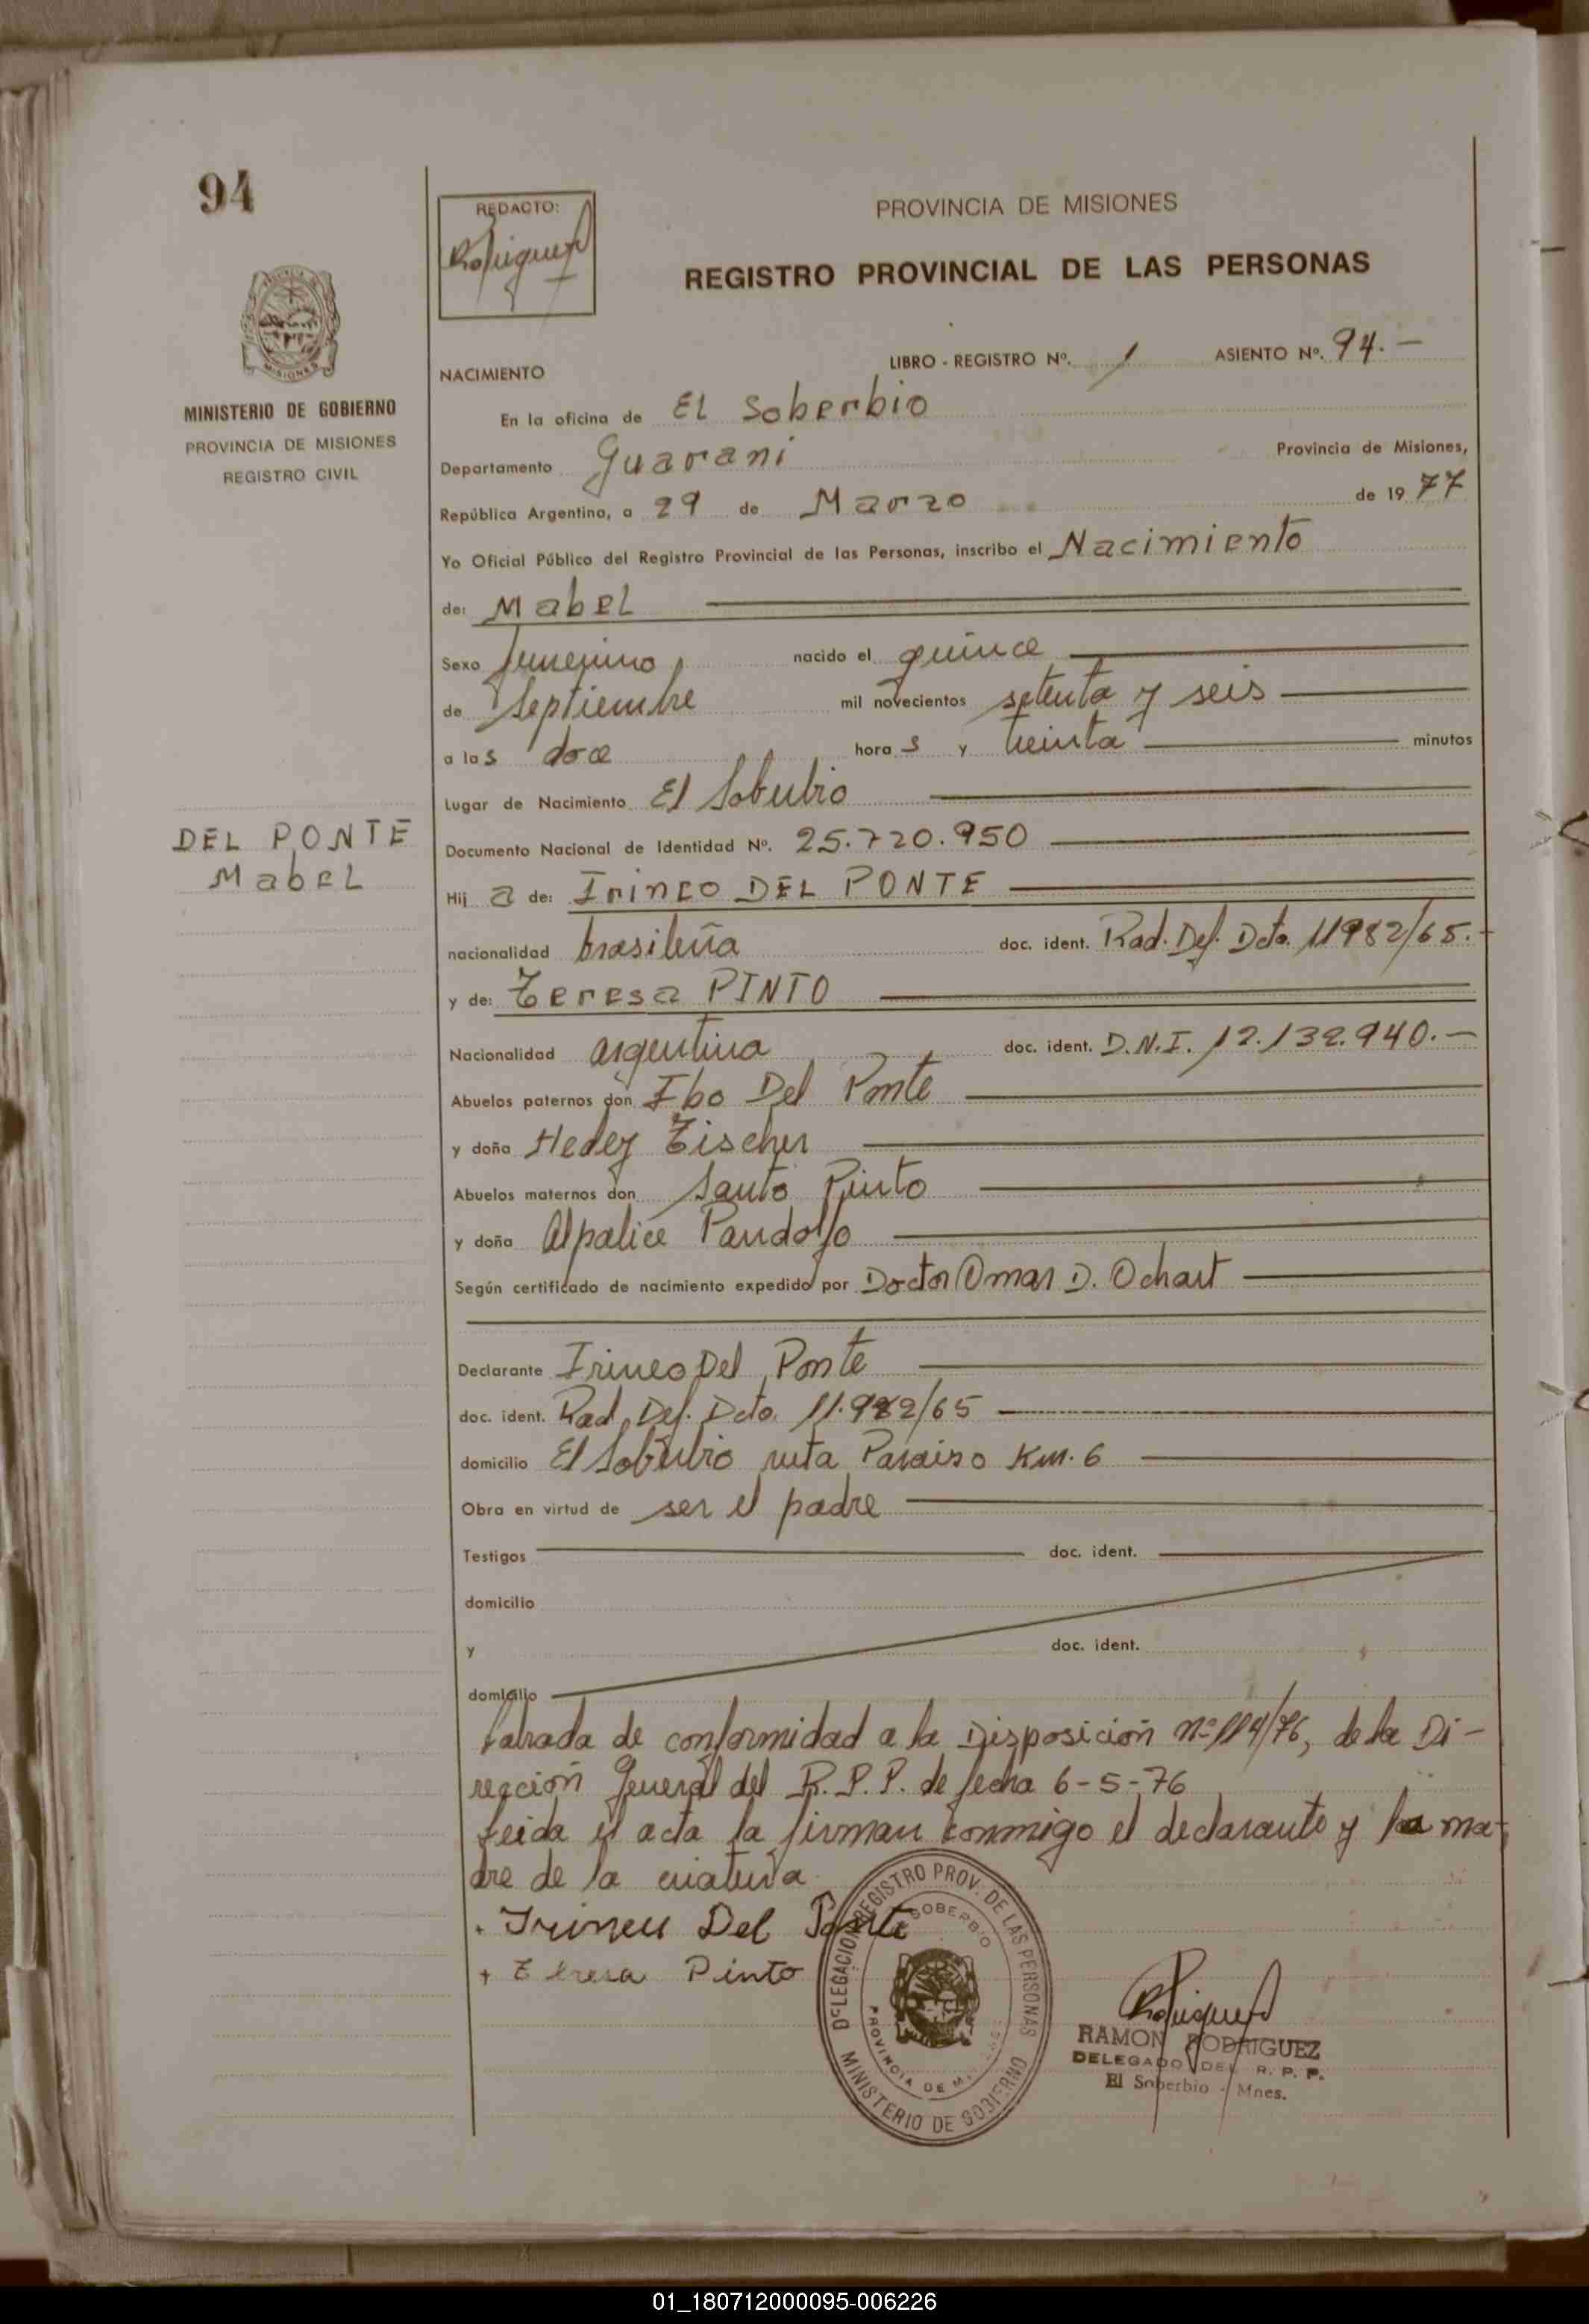 94
REDACTO:
Rodriguez
PROVINCIA DE MISIONES
REGISTRO PROVINCIAL DE LAS PERSONAS
MISIONES
MINISTERIO DE GOBIERNO
PROVINCIA DE MISIONES
REGISTRO CIVIL
NACIMIENTO
LIBRO - REGISTRO Nº. 1 ASIENTO Nº. 94.-
En la oficina de El Soberbio
Departamento Guarani Provincia de Misiones,
República Argentina, a 29 de Marzo de 1977
Yo Oficial Público del Registro Provincial de las Personas, inscribo el Nacimiento
de: Mabel
Sexo femenino, nacido el quince
de Septiembre mil novecientos setenta y seis
a las doce horas y treinta minutos
Lugar de Nacimiento El Soberbio
DEL PONTE
Mabel
Documento Nacional de Identidad Nº. 25.720.950
Hija de: Irineo DEL PONTE
nacionalidad brasileña doc. ident. Rad. Def. Dcto. 11982/65.-
y de: Teresa PINTO
Nacionalidad argentina doc. ident. D.N.I. 12.132.940.-
Abuelos paternos don Ibo Del Ponte
y doña Hedey Tischer
Abuelos maternos don Santo Pinto
y doña Alpalice Pandolfo
Según certificado de nacimiento expedido por Doctor Omar D. Ochart
Declarante Irineo Del Ponte
doc. ident. Rad. Def. Dcto. 11.982/65
domicilio El Soberbio ruta Paraiso Km. 6
Obra en virtud de ser el padre
Testigos doc. ident.
domicilio
y doc. ident.
domicilio
Labrada de conformidad a la Disposición nº 114/76, de la Di-
rección General del R.P.P. de fecha 6-5-76
Leida el acta la firman conmigo el declarante y la ma-
dre de la criatura
+ Irineu Del Ponte
+ Teresa Pinto
DELEGACION REGISTRO PROV. DE LAS PERSONAS
SOBERBIO
PROVINCIA DE
MINISTERIO DE GOBIERNO
Rodriguez
RAMON RODRIGUEZ
DELEGADO DEL R. P. P.
El Soberbio - Mnes.
01_180712000095-006226